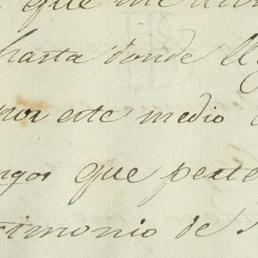 que me
hasta donde
por este medio
que perte
timonio de